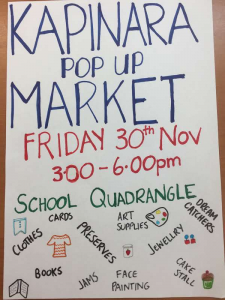 KAPINARA
POP UP
MARKET
FRIDAY 30th Nov
3.00 - 6.00pm
SCHOOL QUADRANGLE
CLOTHES
CARDS
PRESERVES
ART
SUPPLIES
JEWELLERY
DREAM
CATCHERS
BOOKS
JAMS
FACE
PAINTING
CAKE
STALL